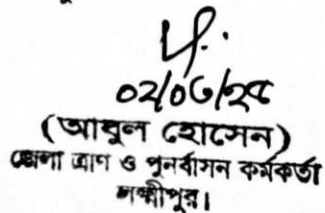 ০২/০৩/২৫
(আবুল হোসেন)
জেলা ত্রাণ ও পুনর্বাসন কর্মকর্তা
লক্ষ্মীপুর।